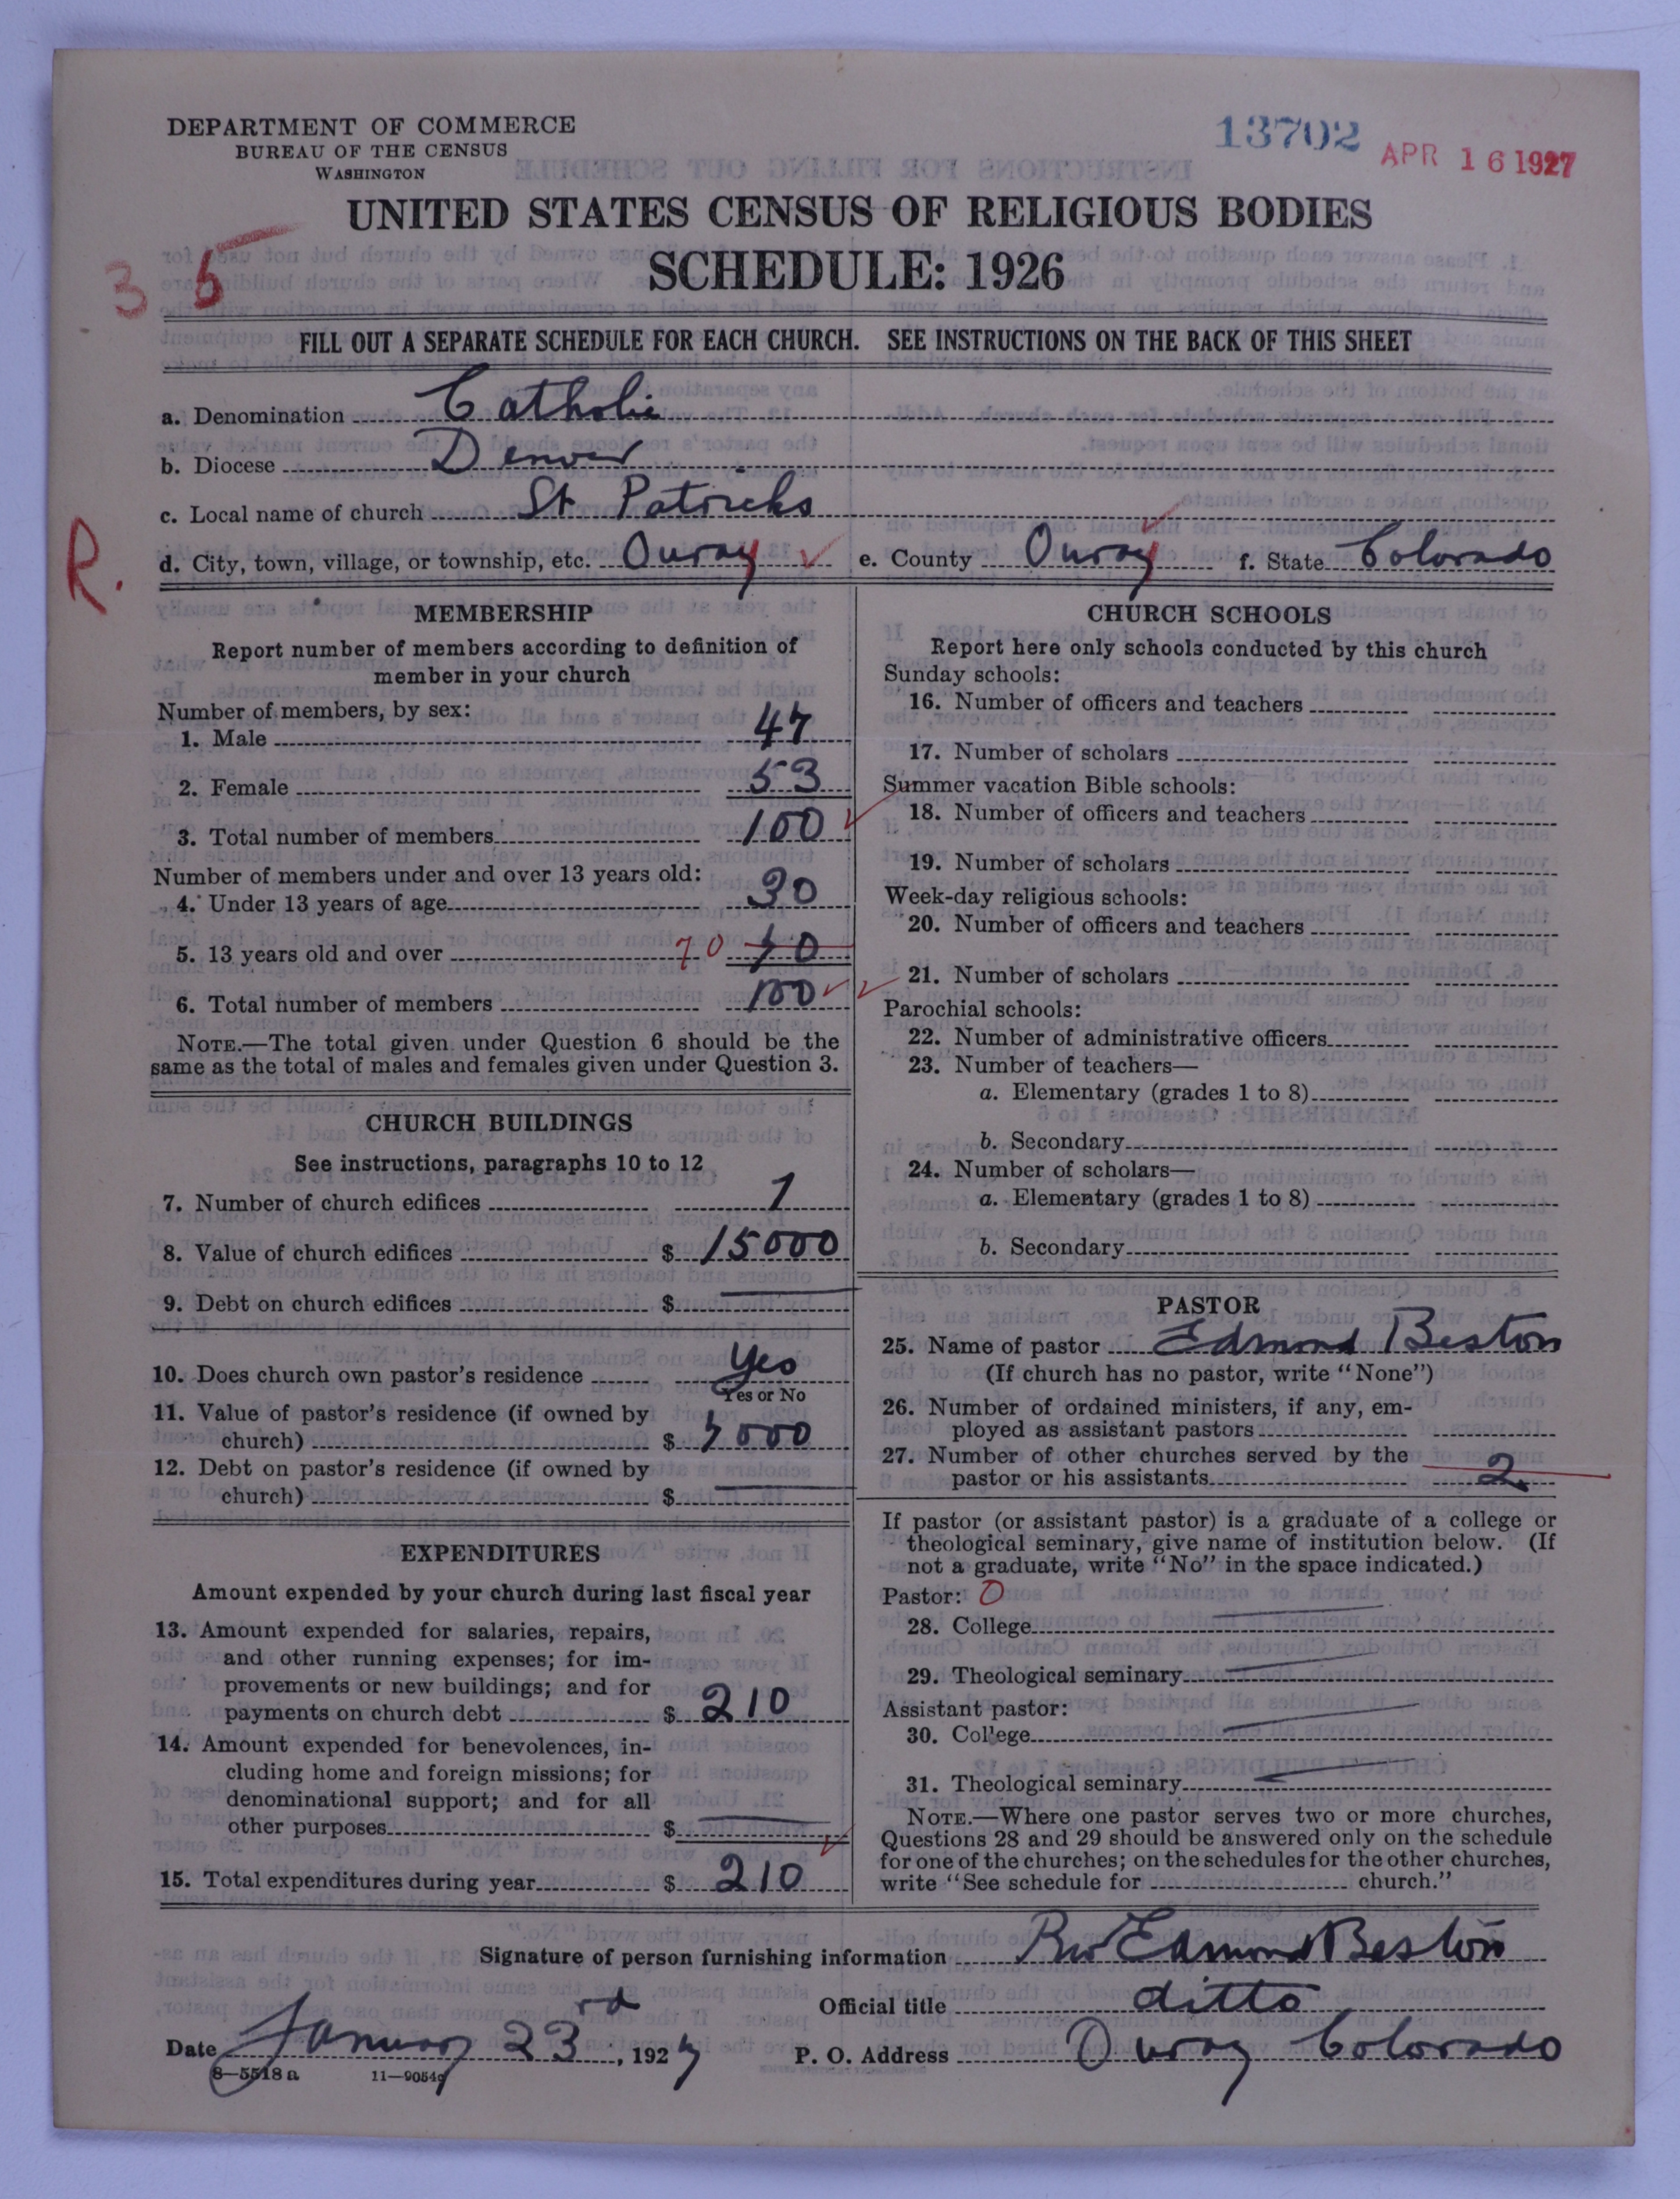 DEPARTMENT OF COMMERCE
BUREAU OF THE CENSUS
WASHINGTON
13702
APR 16 1927
UNITED STATES CENSUS OF RELIGIOUS BODIES
3 5
SCHEDULE: 1926
FILL OUT A SEPARATE SCHEDULE FOR EACH CHURCH. SEE INSTRUCTIONS ON THE BACK OF THIS SHEET
a. Denomination Catholic
b. Diocese Denver
c. Local name of church St Patricks
R.
d. City, town, village, or township, etc. Ouray e. County Ouray f. State Colorado
MEMBERSHIP
Report number of members according to definition of
member in your church
Number of members, by sex:
1. Male 47
2. Female 53
3. Total number of members 100
Number of members under and over 13 years old:
4. Under 13 years of age 30
5. 13 years old and over 70 70
6. Total number of members 100
NOTE.—The total given under Question 6 should be the
same as the total of males and females given under Question 3.
CHURCH BUILDINGS
See instructions, paragraphs 10 to 12
7. Number of church edifices 1
8. Value of church edifices $ 15000
9. Debt on church edifices $
10. Does church own pastor's residence Yes
Yes or No
11. Value of pastor's residence (if owned by
church) $ 7000
12. Debt on pastor's residence (if owned by
church) $
EXPENDITURES
Amount expended by your church during last fiscal year
13. Amount expended for salaries, repairs,
and other running expenses; for im-
provements or new buildings; and for
payments on church debt $ 210
14. Amount expended for benevolences, in-
cluding home and foreign missions; for
denominational support; and for all
other purposes $
15. Total expenditures during year $ 210
CHURCH SCHOOLS
Report here only schools conducted by this church
Sunday schools:
16. Number of officers and teachers
17. Number of scholars
Summer vacation Bible schools:
18. Number of officers and teachers
19. Number of scholars
Week-day religious schools:
20. Number of officers and teachers
21. Number of scholars
Parochial schools:
22. Number of administrative officers
23. Number of teachers—
a. Elementary (grades 1 to 8)
b. Secondary
24. Number of scholars—
a. Elementary (grades 1 to 8)
b. Secondary
PASTOR
25. Name of pastor Edmond Beston
(If church has no pastor, write "None")
26. Number of ordained ministers, if any, em-
ployed as assistant pastors
27. Number of other churches served by the
pastor or his assistants 2
If pastor (or assistant pastor) is a graduate of a college or
theological seminary, give name of institution below. (If
not a graduate, write "No" in the space indicated.)
Pastor: 0
28. College
29. Theological seminary
Assistant pastor:
30. College
31. Theological seminary
NOTE.—Where one pastor serves two or more churches,
Questions 28 and 29 should be answered only on the schedule
for one of the churches; on the schedules for the other churches,
write "See schedule for church."
Signature of person furnishing information Rev Edmond Beston
Official title ditto
Date January 23rd, 1927 P. O. Address Ouray Colorado
8—5518 a 11—9054